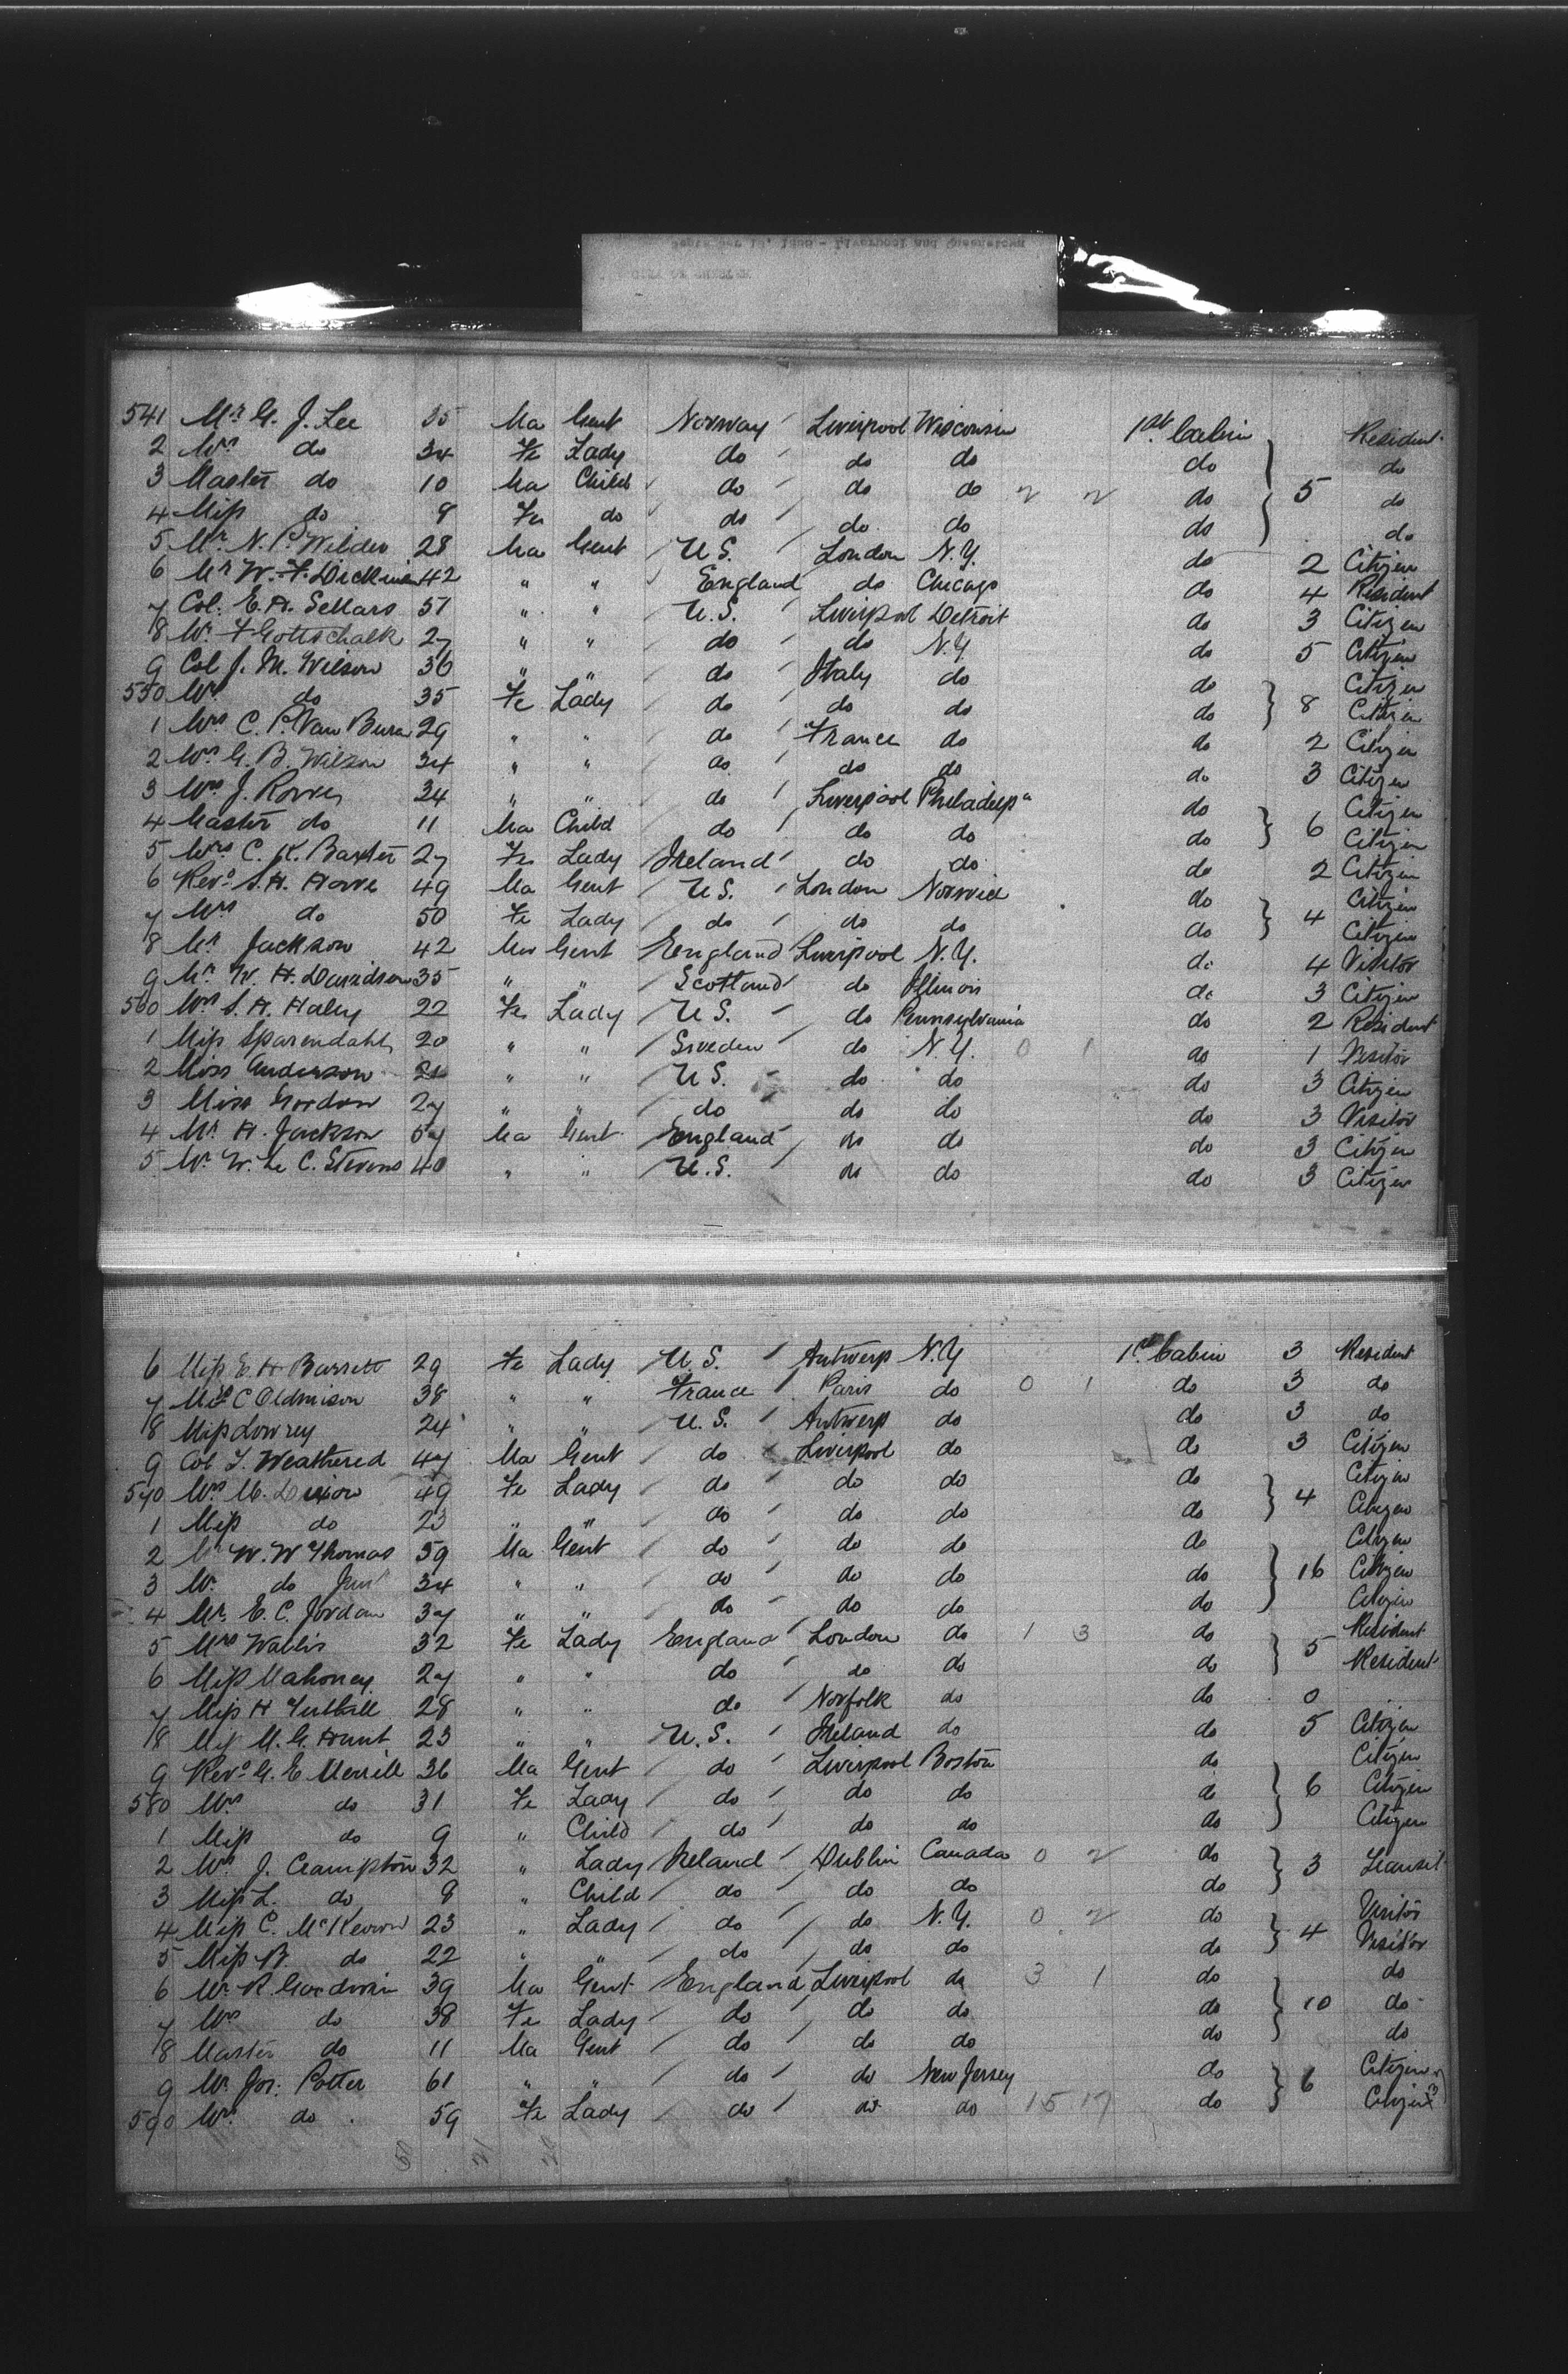 541 Mr G. J. Lee 35 Ma Gent Norway Liverpool Wisconsin 1st Cabin Resident
2 Mrs do 34 Fe Lady do do do do do
3 Master do 10 Ma Child do do do 2 2 do 5 do
4 Miss do 9 Fe do do do do do do
5 Mr N. P. Wilder 28 Ma Gent U.S. London N.Y. do 2 Citizen
6 Mr W. F. Dickinson 42 " " England do Chicago do 4 Resident
7 Col. E. H. Sellars 57 " " U.S. Liverpool Detroit do 3 Citizen
8 Mr F Gottschalk 27 " " do do N.Y do 5 Citizen
9 Col J. M. Wilson 36 " " do Italy do do Citizen
550 Mrs do 35 Fe Lady do do do do 8 Citizen
1 Mrs C. P. Van Buren 29 " " do France do do 2 Citizen
2 Mrs G. B. Wilson 34 " " do do do do 3 Citizen
3 Mrs J. 34 " " do Liverpool Philadelpa do Citizen
4 Master do 11 Ma Child do do do do 6 Citizen
5 Mrs C. K. Baxter 27 Fe Lady Ireland do do do 2 Citizen
6 Revd S. H. Howe 49 Ma Gent U.S. London do Citizen
7 Mrs do 50 Fe Lady do do do do 4 Citizen
8 Mr Jackson 42 Ma Gent England Liverpool N.Y. do 4 Visitor
9 Mr W. H. Davidson 35 " " Scotland do Illinois do 3 Citizen
560 Mrs S. H. Haley 22 Fe Lady U.S. do Pennsylvania do 2 Resident
1 Miss Sparendahl 20 " " Sweden do N.Y. 0 1 do 1 Visitor
2 Miss Anderson 21 " " U.S. do do do 3 Citizen
3 Miss Gordon 27 " " do do do do 3 Visitor
4 Mr H. Jackson 57 Ma Gent England do do do 3 Citizen
5 Mr W. Le C. Stevens 40 " " U.S. do do do 3 Citizen
6 Miss E H Barrett 29 Fe Lady U.S. Antwerp N.Y 1st Cabin 3 Resident
7 Miss C Oldmison 38 " " France Paris do 0 1 do 3 do
8 Miss Lowrey 24 " " U.S. Antwerp do do 3 do
9 Col J. Weathered 47 Ma Gent do Liverpool do do 3 Citizen
570 Mrs M. Dixon 49 Fe Lady do do do do Citizen
1 Miss do 23 " " do do do do 4 Citizen
2 Mr W. W Thomas 59 Ma Gent do do do do Citizen
3 Mr do Junr 34 " " do do do do 16 Citizen
4 Mr E. C. Jordan 37 " " do do do do Citizen
5 Mrs Wallis 32 Fe Lady England London do 1 3 do Resident
6 Miss Mahoney 27 " " do do do do 5 Resident
7 Miss H Tuthill 28 " " do Norfolk do do 0
8 Miss M. G. Hunt 23 " " U.S. Ireland do do 5 Citizen
9 Revd G. E Merrill 36 Ma Gent do Liverpool Boston do Citizen
580 Mrs do 31 Fe Lady do do do do 6 Citizen
1 Miss do 9 " Child do do do do Citizen
2 Mrs J. Crampton 32 " Lady Ireland Dublin Canada 0 2 do 3 Transit
3 Miss L. do 8 " Child do do do do
4 Miss C. McKeown 23 " Lady do do N.Y. 0 2 do Visitor
5 Miss B. do 22 " " do do do do 4 Visitor
6 Mr R. Goodwin 39 Ma Gent England Liverpool do 3 1 do do
7 Mrs do 38 Fe Lady do do do do 10 do
8 Master do 11 Ma Gent do do do do do
9 Mr Jos. Potter 61 " " do do New Jersey do Citizen
590 Mrs do 59 Fe Lady do do do 15 17 do 6 Citizen